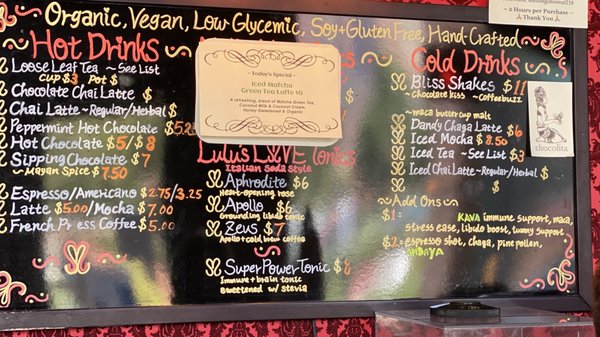 ~ 2 Hours per Purchase ~
Thank You
Organic, Vegan, Low-Glycemic, Soy+Gluten Free, Hand-Crafted
Hot Drinks
Loose Leaf Tea ~ See List
Cup $3 Pot $
Chocolate Chai Latte $
Chai Latte ~ Regular/Herbal $
Peppermint Hot Chocolate $5.25
Hot Chocolate $5/$8
Sipping Chocolate $7
~ Mayan Spice $7.50
Espresso/Americano $2.75/3.25
Latte $5.00/Mocha $7.00
French Press Coffee $5.00
~ Today's Special ~
Iced Matcha
Green Tea Latte $6
A refreshing, blend of Matcha Green Tea,
Coconut Milk & Coconut Cream
Honey-Sweetened & Organic
Lulu's LOVE Tonics
Italian Soda Style
Aphrodite $6
Heart-opening rose
Apollo $6
Grounding libido tonic
Zeus $7
Apollo + cold brew coffee
Super Power Tonic $8
Immune + brain tonic
sweetened w/ stevia
Cold Drinks
Bliss Shakes $11
~ chocolate kiss ~ coffeebuzz
~ maca buttercup malt
Dandy Chaga Latte $6
Iced Mocha $8.50
Iced Tea ~ See List $3
Iced Chai Latte ~ Regular/Herbal $
$
~ Add Ons ~
$1 = KAVA immune support, maca,
stress ease, libido boost, tummy support
$2 = espresso shot, chaga, pine pollen,
chocolita